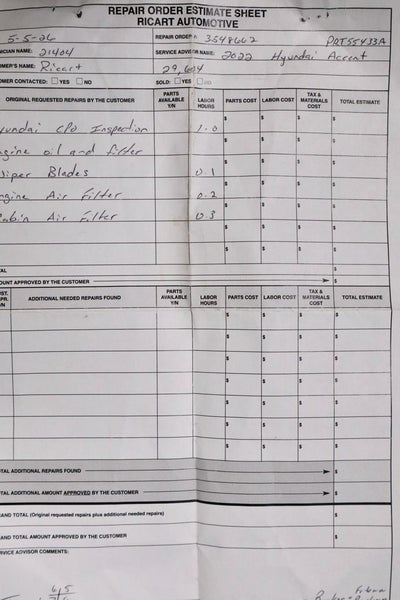 REPAIR ORDER ESTIMATE SHEET
RICART AUTOMOTIVE
5-5-26 REPAIR ORDER #: 3548662 PDT55433A
ICIAN NAME: 21404 SERVICE ADVISOR NAME: 2022 Hyundai Accent
OMER'S NAME: Ricart 29,604
OMER CONTACTED: YES NO SOLD: YES NO
ORIGINAL REQUESTED REPAIRS BY THE CUSTOMER PARTS AVAILABLE Y/N LABOR HOURS PARTS COST LABOR COST TAX & MATERIALS COST TOTAL ESTIMATE
yundai CPO Inspection 1.0 $ $ $ $
ngine oil and filter $ $ $ $
iper Blades 0.1 $ $ $ $
ngine Air Filter 0.2 $ $ $ $
abin Air Filter 0.3 $ $ $ $
$ $ $ $
$ $ $ $
AL $
OUNT APPROVED BY THE CUSTOMER $
ADDITIONAL NEEDED REPAIRS FOUND PARTS AVAILABLE Y/N LABOR HOURS PARTS COST LABOR COST TAX & MATERIALS COST TOTAL ESTIMATE
$ $ $ $
$ $ $ $
$ $ $ $
$ $ $ $
$ $ $ $
$ $ $ $
$ $ $ $
TAL ADDITIONAL REPAIRS FOUND $
TAL ADDITIONAL AMOUNT APPROVED BY THE CUSTOMER $
AND TOTAL (Original requested repairs plus additional needed repairs) $
AND TOTAL AMOUNT APPROVED BY THE CUSTOMER $
RVICE ADVISOR COMMENTS:
6 5